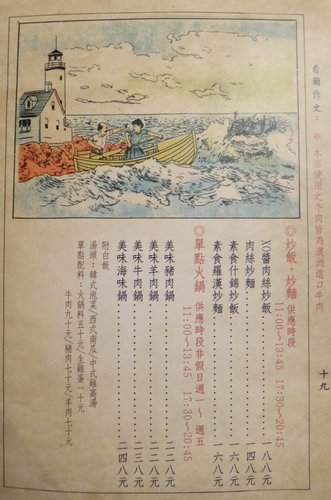 看圖作文：
※本店使用之牛肉皆為澳洲進口牛肉
十九
◎炒飯．炒麵 供應時段
11:00~13:45 17:30~20:45
XO醬肉絲炒飯 一八八元
肉絲炒麵 一四八元
素食什錦炒飯 一六八元
素食羅漢炒麵 一六八元
◎單點火鍋 供應時段非假日週一~週五
11:00~13:45 17:30~20:45
美味豬肉鍋 二二八元
美味羊肉鍋 二二八元
美味牛肉鍋 二四八元
美味海味鍋 二四八元
附白飯
湯頭：韓式泡菜/西式南瓜/中式雞高湯
單點配料：火鍋料五十元/生雞蛋一十元
牛肉九十元/豬肉七十元/羊肉七十元